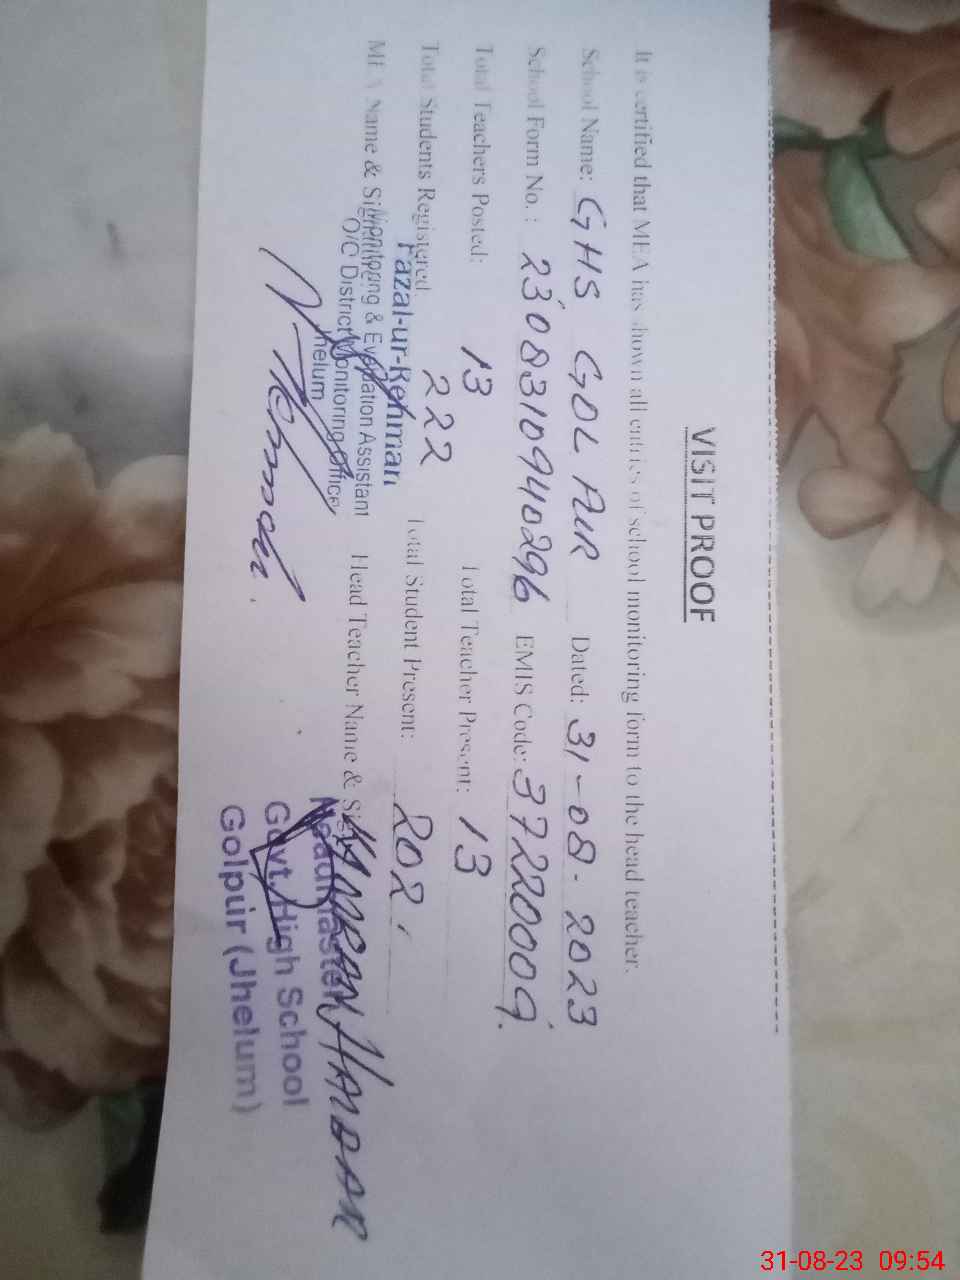 VISIT PROOF
It is certified that MEA has shown all entries of school monitoring form to the head teacher.
School Name: GHS GOL AIR Dated: 31-08-2023
School Form No. : 230831094 0296 EMIS Code: 37220009.
Total Teachers Posted: 13 Total Teacher Present: 13
Total Students Registered: 222 Total Student Present: 202
MEA Name & Head Teacher Name &
Fazal-ur-Rehman
Monitoring & Evaluation Assistant
O/C District Monitoring Office
Jhelum
Rehman.
HAIDAR
Headmaster
Govt. High School
Golpur (Jhelum)
31-08-23 09:54